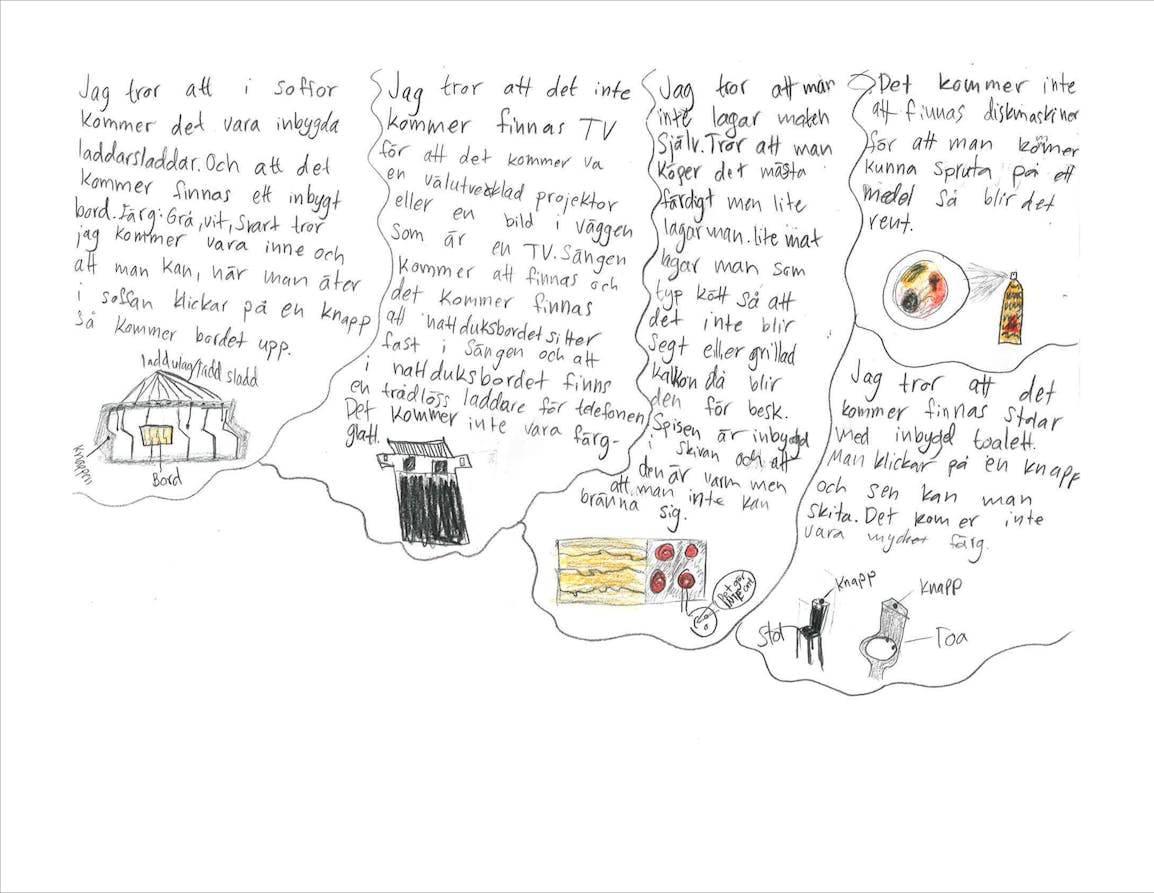 Jag tror att i soffor
kommer det vara inbygda
laddarsladdar. Och att det
kommer finnas ett inbygt
bord. Färg: Grå, vit, Svart tror
jag kommer vara inne och
att man kan, när man äter
i soffan klickar på en knapp
så kommer bordet upp.
sladd
knappen
Bord
Jag tror att det inte
kommer finnas TV
för att det kommer va
en välutvecklad projektor
eller en bild i väggen
som är en TV. Sängen
kommer att finnas och
det kommer finnas
att natt duksbordet sitter
fast i sängen och att
i natt duksbordet finns
en trådlöss laddare för telefonen
Det kommer inte vara färg-
glatt.
Jag tror att man
inte lagar maten
Själv. Tror att man
köper det mästa
färdigt men lite
lagar man. lite mat
lagar man som
typ kött så att
det inte blir
segt eller grillad
kalkon då blir
den för besk.
Spisen är inbyggd
i skivan och att
den är varm men
att man inte kan
bränna sig.
Det gör
INTE ont
Det kommer inte
att finnas diskmaskiner
för att man kommer
kunna spruta på ett
medel så blir det
rent.
Jag tror att det
kommer finnas stolar
med inbygd toalett.
Man klickar på en knapp
och sen kan man
skita. Det kom er inte
vara mycket färg.
knapp
Stol
knapp
Toa